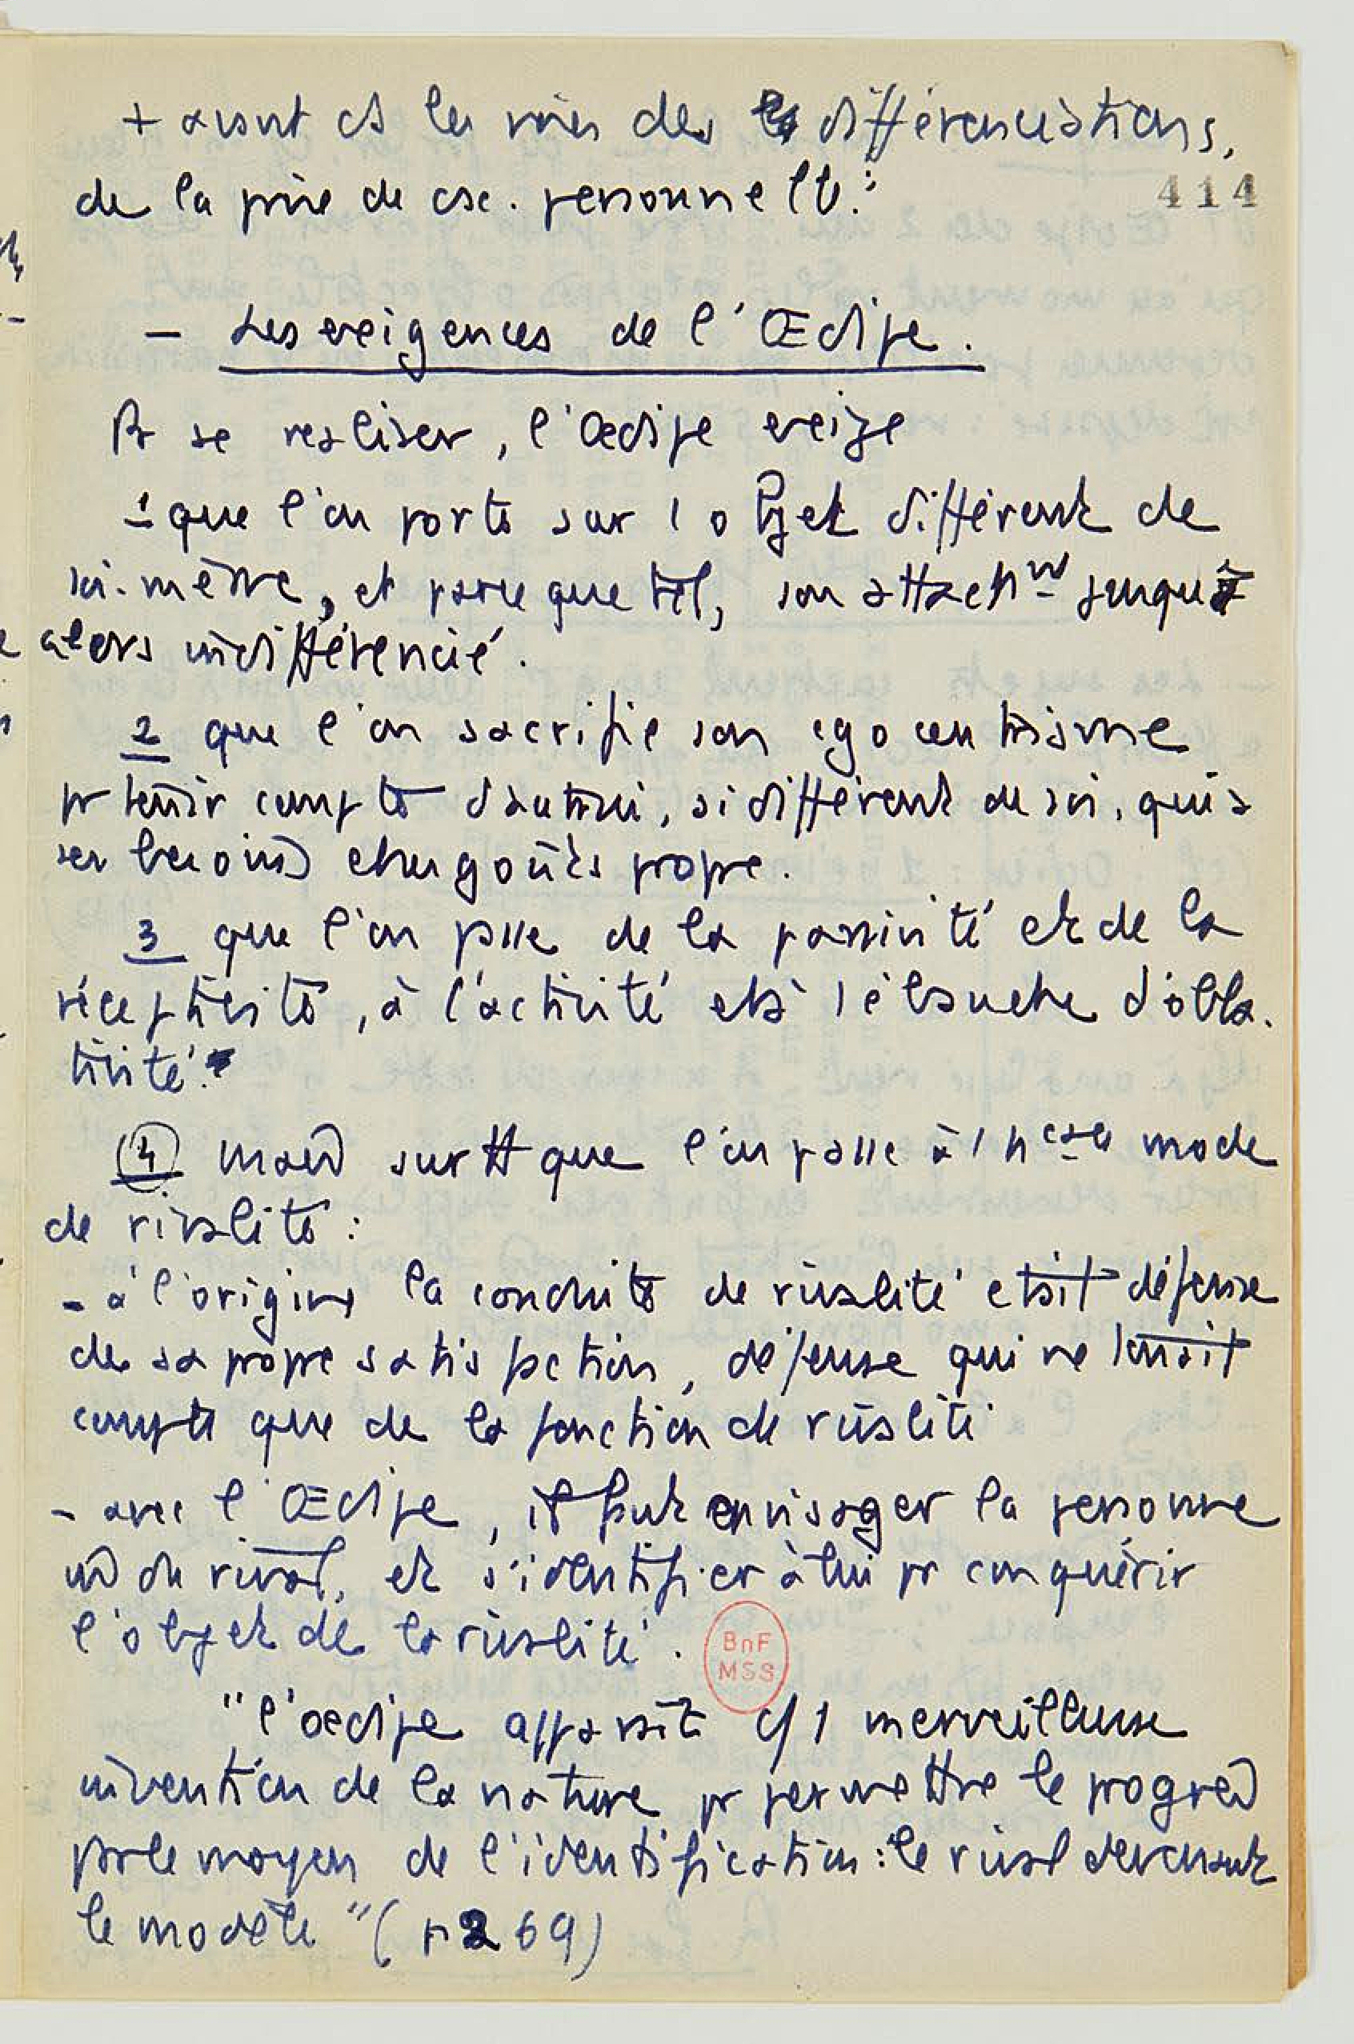 + avant ds les voies des différenciations,
de la prise de csc. personnelle.
414
- Les exigences de l'Œdipe.
Pr se realiser, l'œdipe exige
1 que l'on porte sur 1 objet différent de
soi-même, et parce que tel, son attachnt jusqu'à
alors indifférencié.
2 que l'on sacrifie son egocentrisme
pr tenir compte d'autrui, si différent de soi, qui a
ses besoins et ses goûts propre.
3 que l'on passe de la passivité et de la
réceptivité, à l'activité et à l'ébauche d'obla-
tivité.
(4) mais surtt que l'on passe à 1 nveau mode
de rivalité :
- à l'origine la conduite de rivalité était défense
de sa propre satisfaction, défense qui ne tenait
compte que de la fonction de rivalité
- avec l'Œdipe, il faut envisager la personne
m̂ du rival, et s'identifier à lui pr conquérir
l'objet de la rivalité.
BnF
MSS
"l'oedipe apparaît c/ 1 merveilleuse
invention de la nature pr permettre le progrès
par le moyen de l'identification : le rival devenant
le modèle" (p 269)